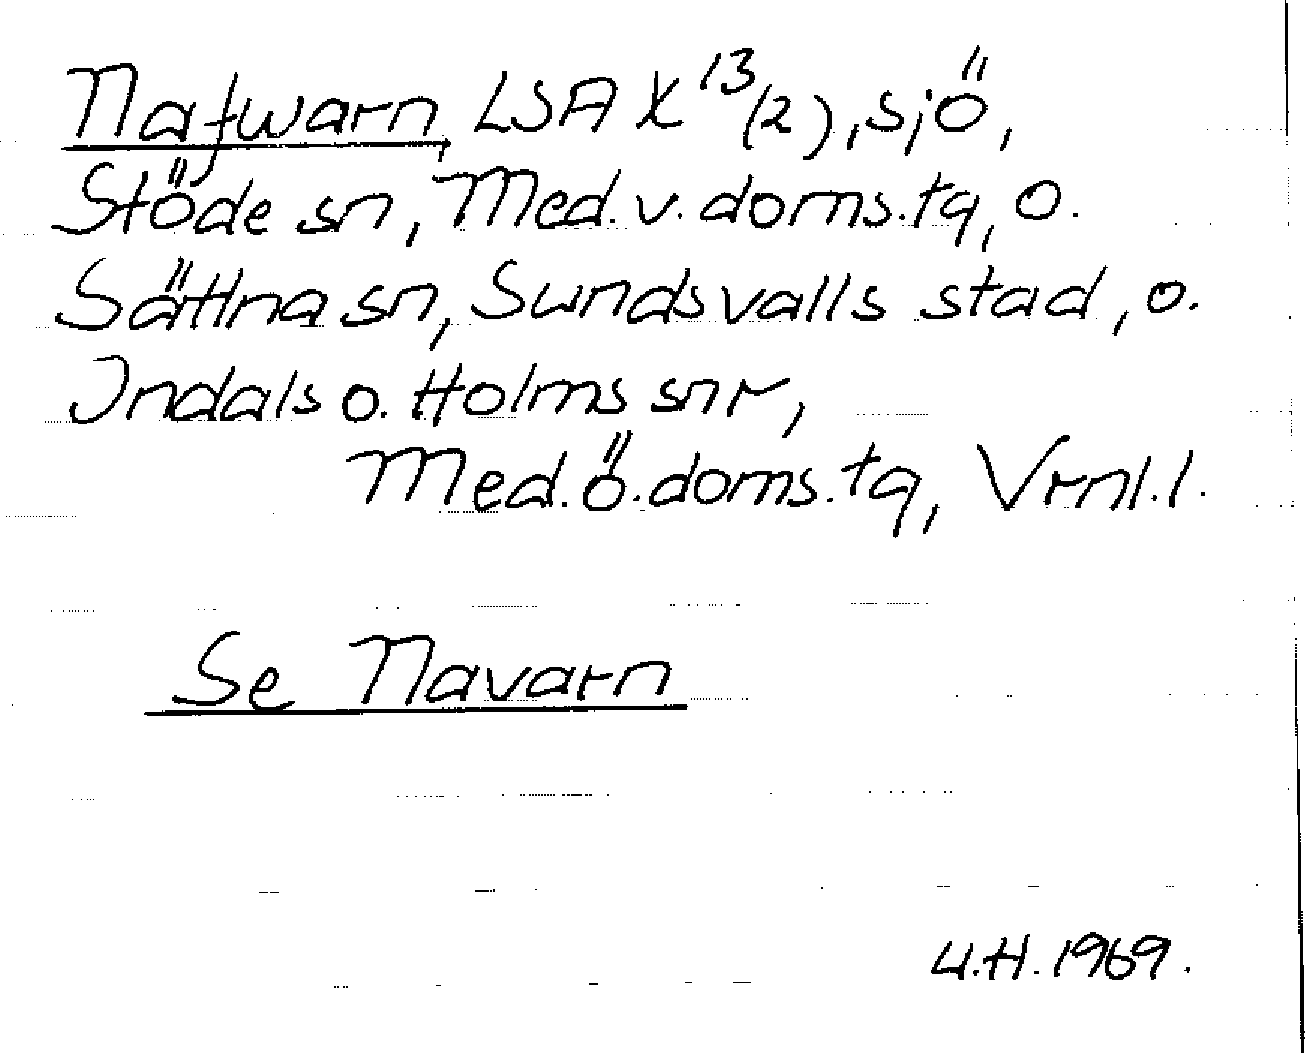 Nafwarn, LSA X 13/(2), sjö,
Stöde sn, Med. v. doms. tg, o.
Sättna sn, Sundsvalls stad, o.
Indals o. Holms snr,
Med. ö. doms. tg, Vrnl. l.
Se Navarn
U.H. 1969.